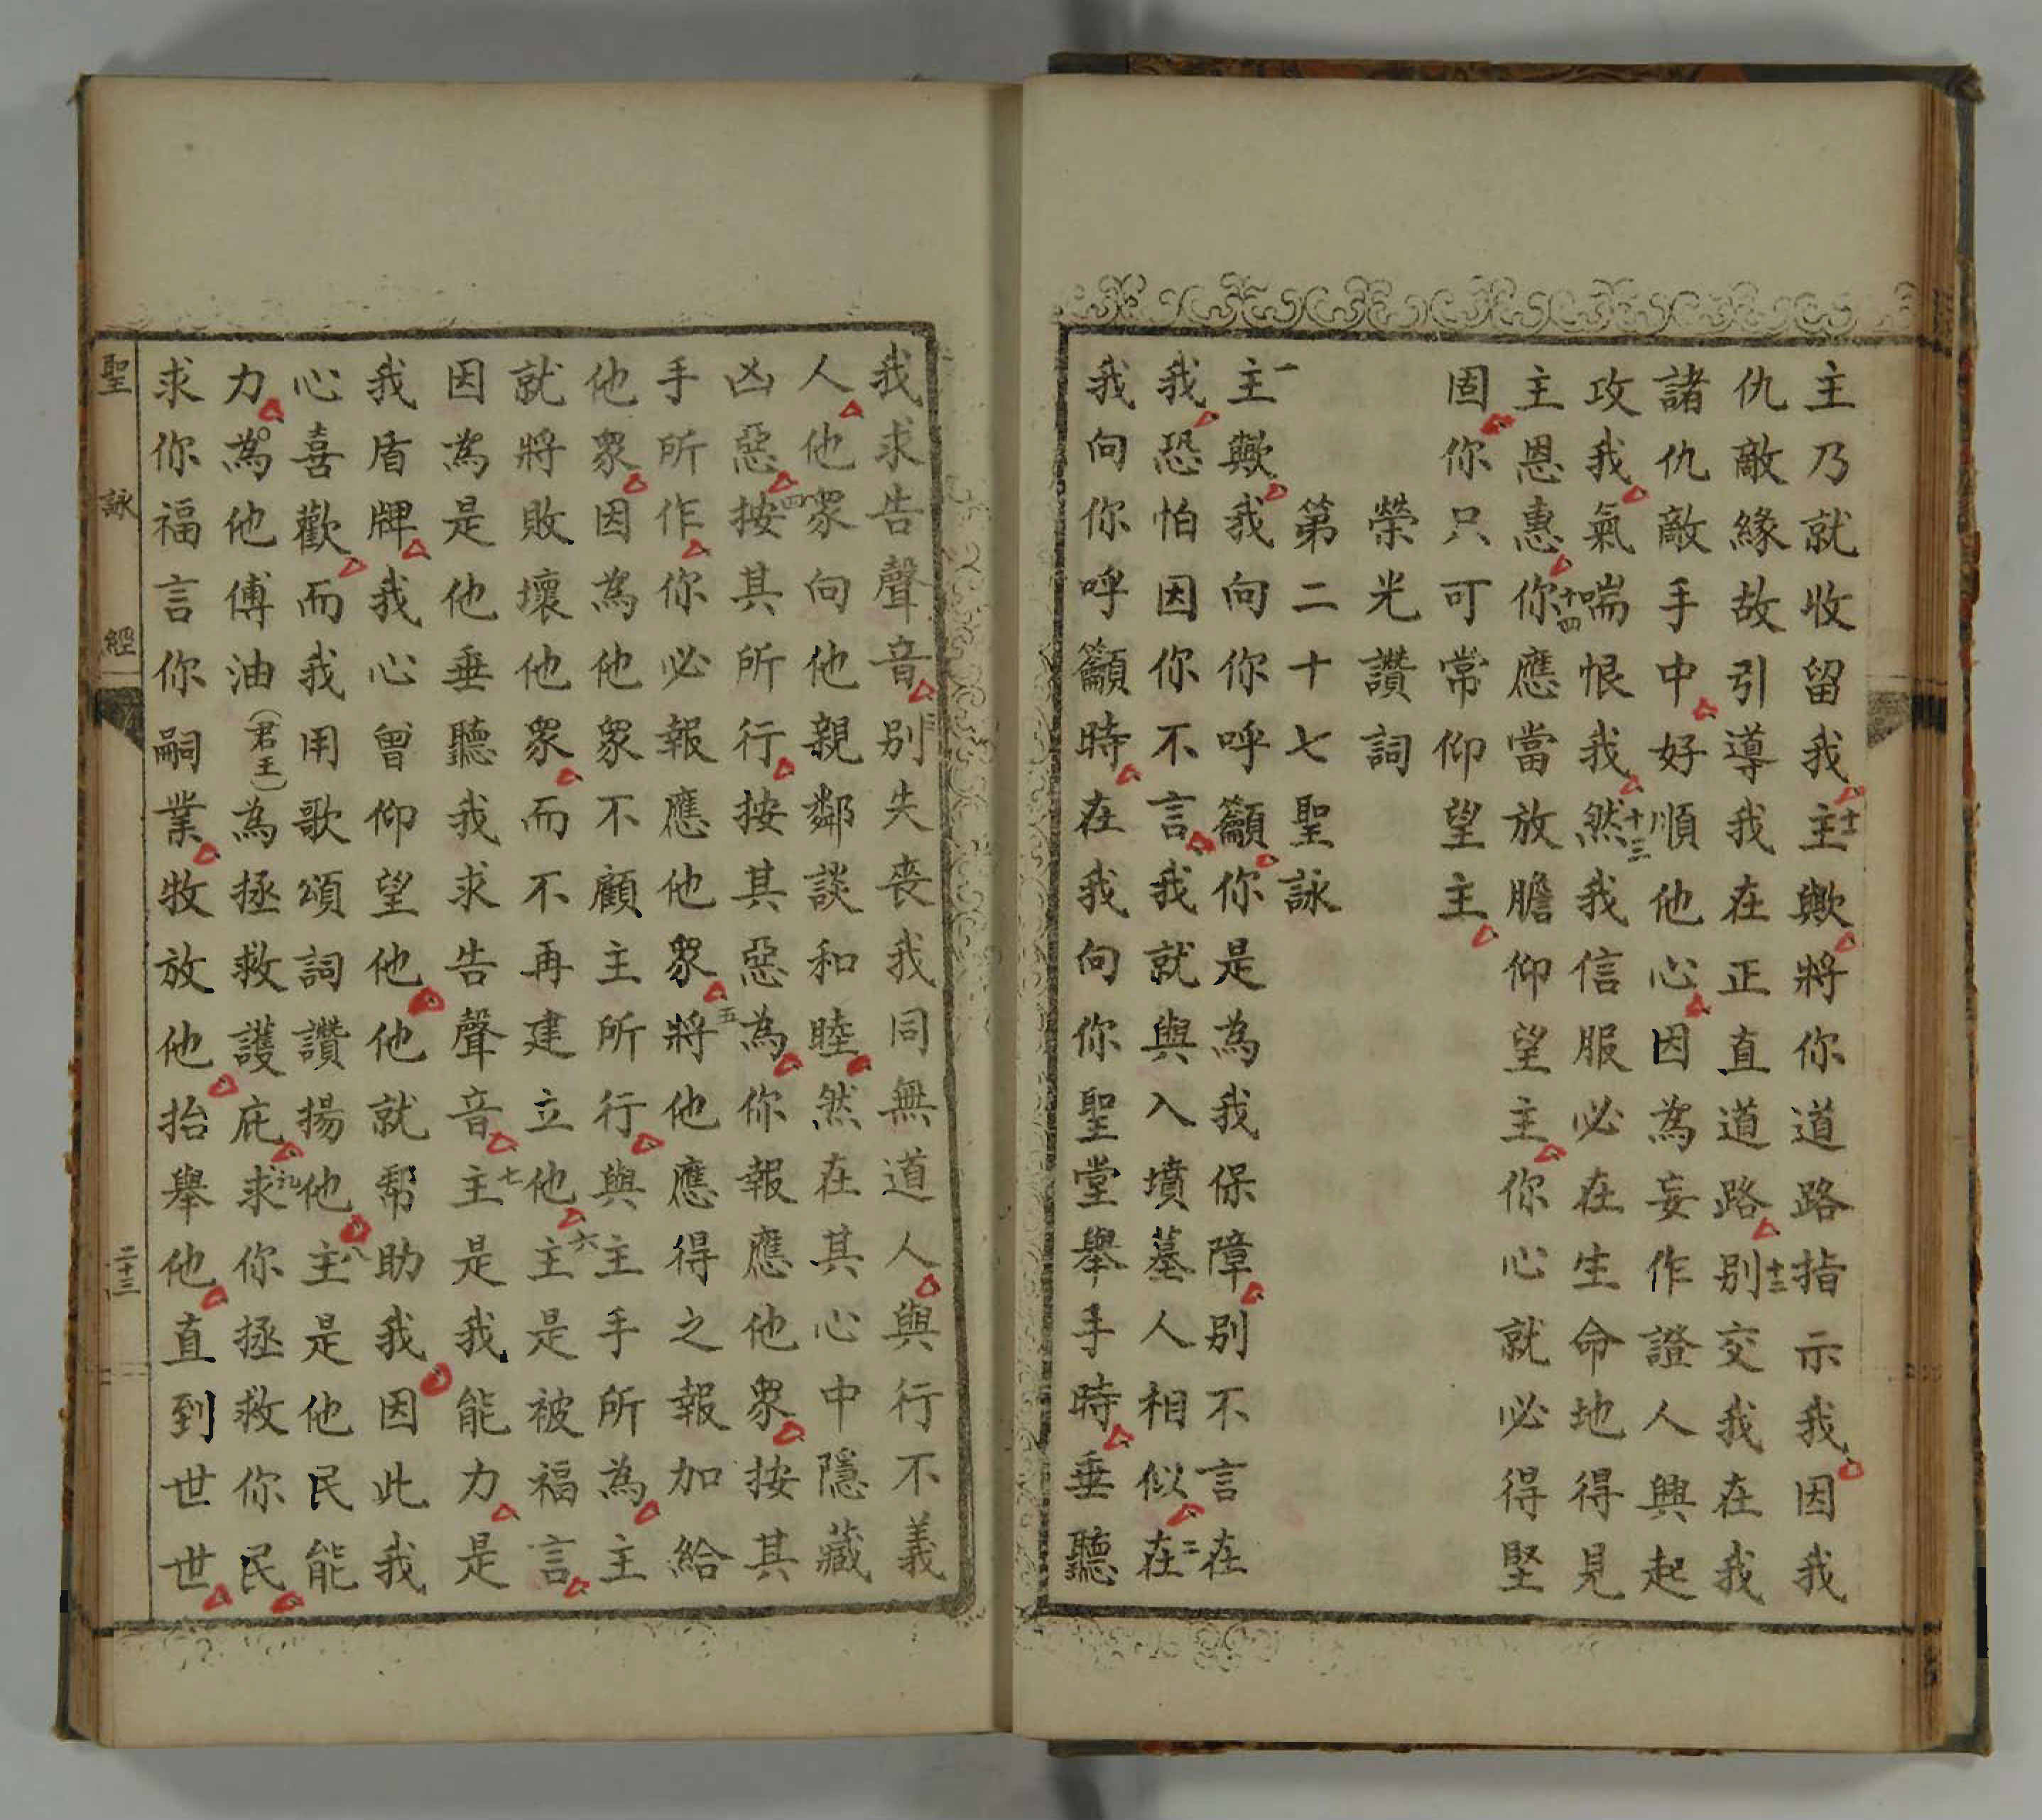 主乃就收留我十一主歟將你道路指示我因我
仇敵緣故引導我在正直道路十二別交我在我
諸仇敵手中好順他心因為妄作證人興起
攻我氣喘恨我十三然我信服必在生命地得見
主恩惠十四你應當放膽仰望主你心就必得堅
固你只可常仰望主
榮光讚詞
第二十七聖詠
一主歟我向你呼籲你是為我保障別不言在
我恐怕因你不言我就與入墳墓人相似二在
我向你呼籲時在我向你聖堂舉手時垂聽
我求告聲音三別失喪我同無道人與行不義
人他眾向他親鄰談和睦然在其心中隱藏
凶惡四按其所行按其惡為你報應他眾按其
手所作你必報應他眾五將他應得之報加給
他眾因為他眾不顧主所行與主手所為主
就將敗壞他眾而不再建立他六主是被福言
因為是他垂聽我求告聲音七主是我能力是
我盾牌我心曾仰望他他就幫助我因此我
心喜歡而我用歌頌詞讚揚他八主是他民能
力為他傅油(君王)為拯救護庇九求你拯救你民
求你福言你嗣業牧放他抬舉他直到世世
聖詠經
二十三